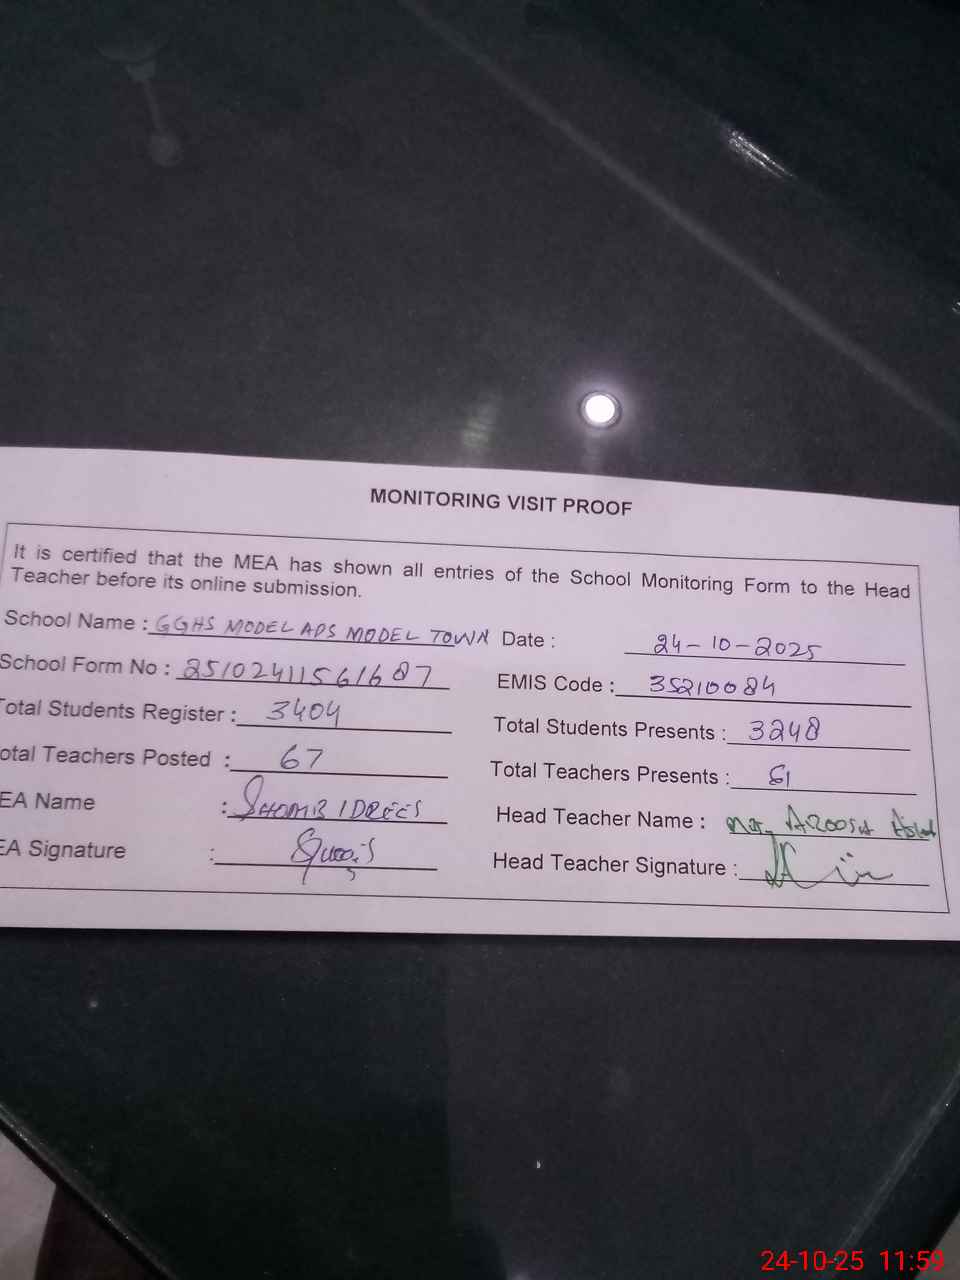 MONITORING VISIT PROOF
It is certified that the MEA has shown all entries of the School Monitoring Form to the Head
Teacher before its online submission.
School Name : GGHS MODEL APS MODEL TOWN Date : 24-10-2025
School Form No : 25102411561687 EMIS Code : 35210084
Total Students Register : 3404 Total Students Presents : 3248
otal Teachers Posted : 67 Total Teachers Presents : 61
EA Name : IDREES Head Teacher Name : AROOSA
EA Signature : Head Teacher Signature :
24-10-25 11:59